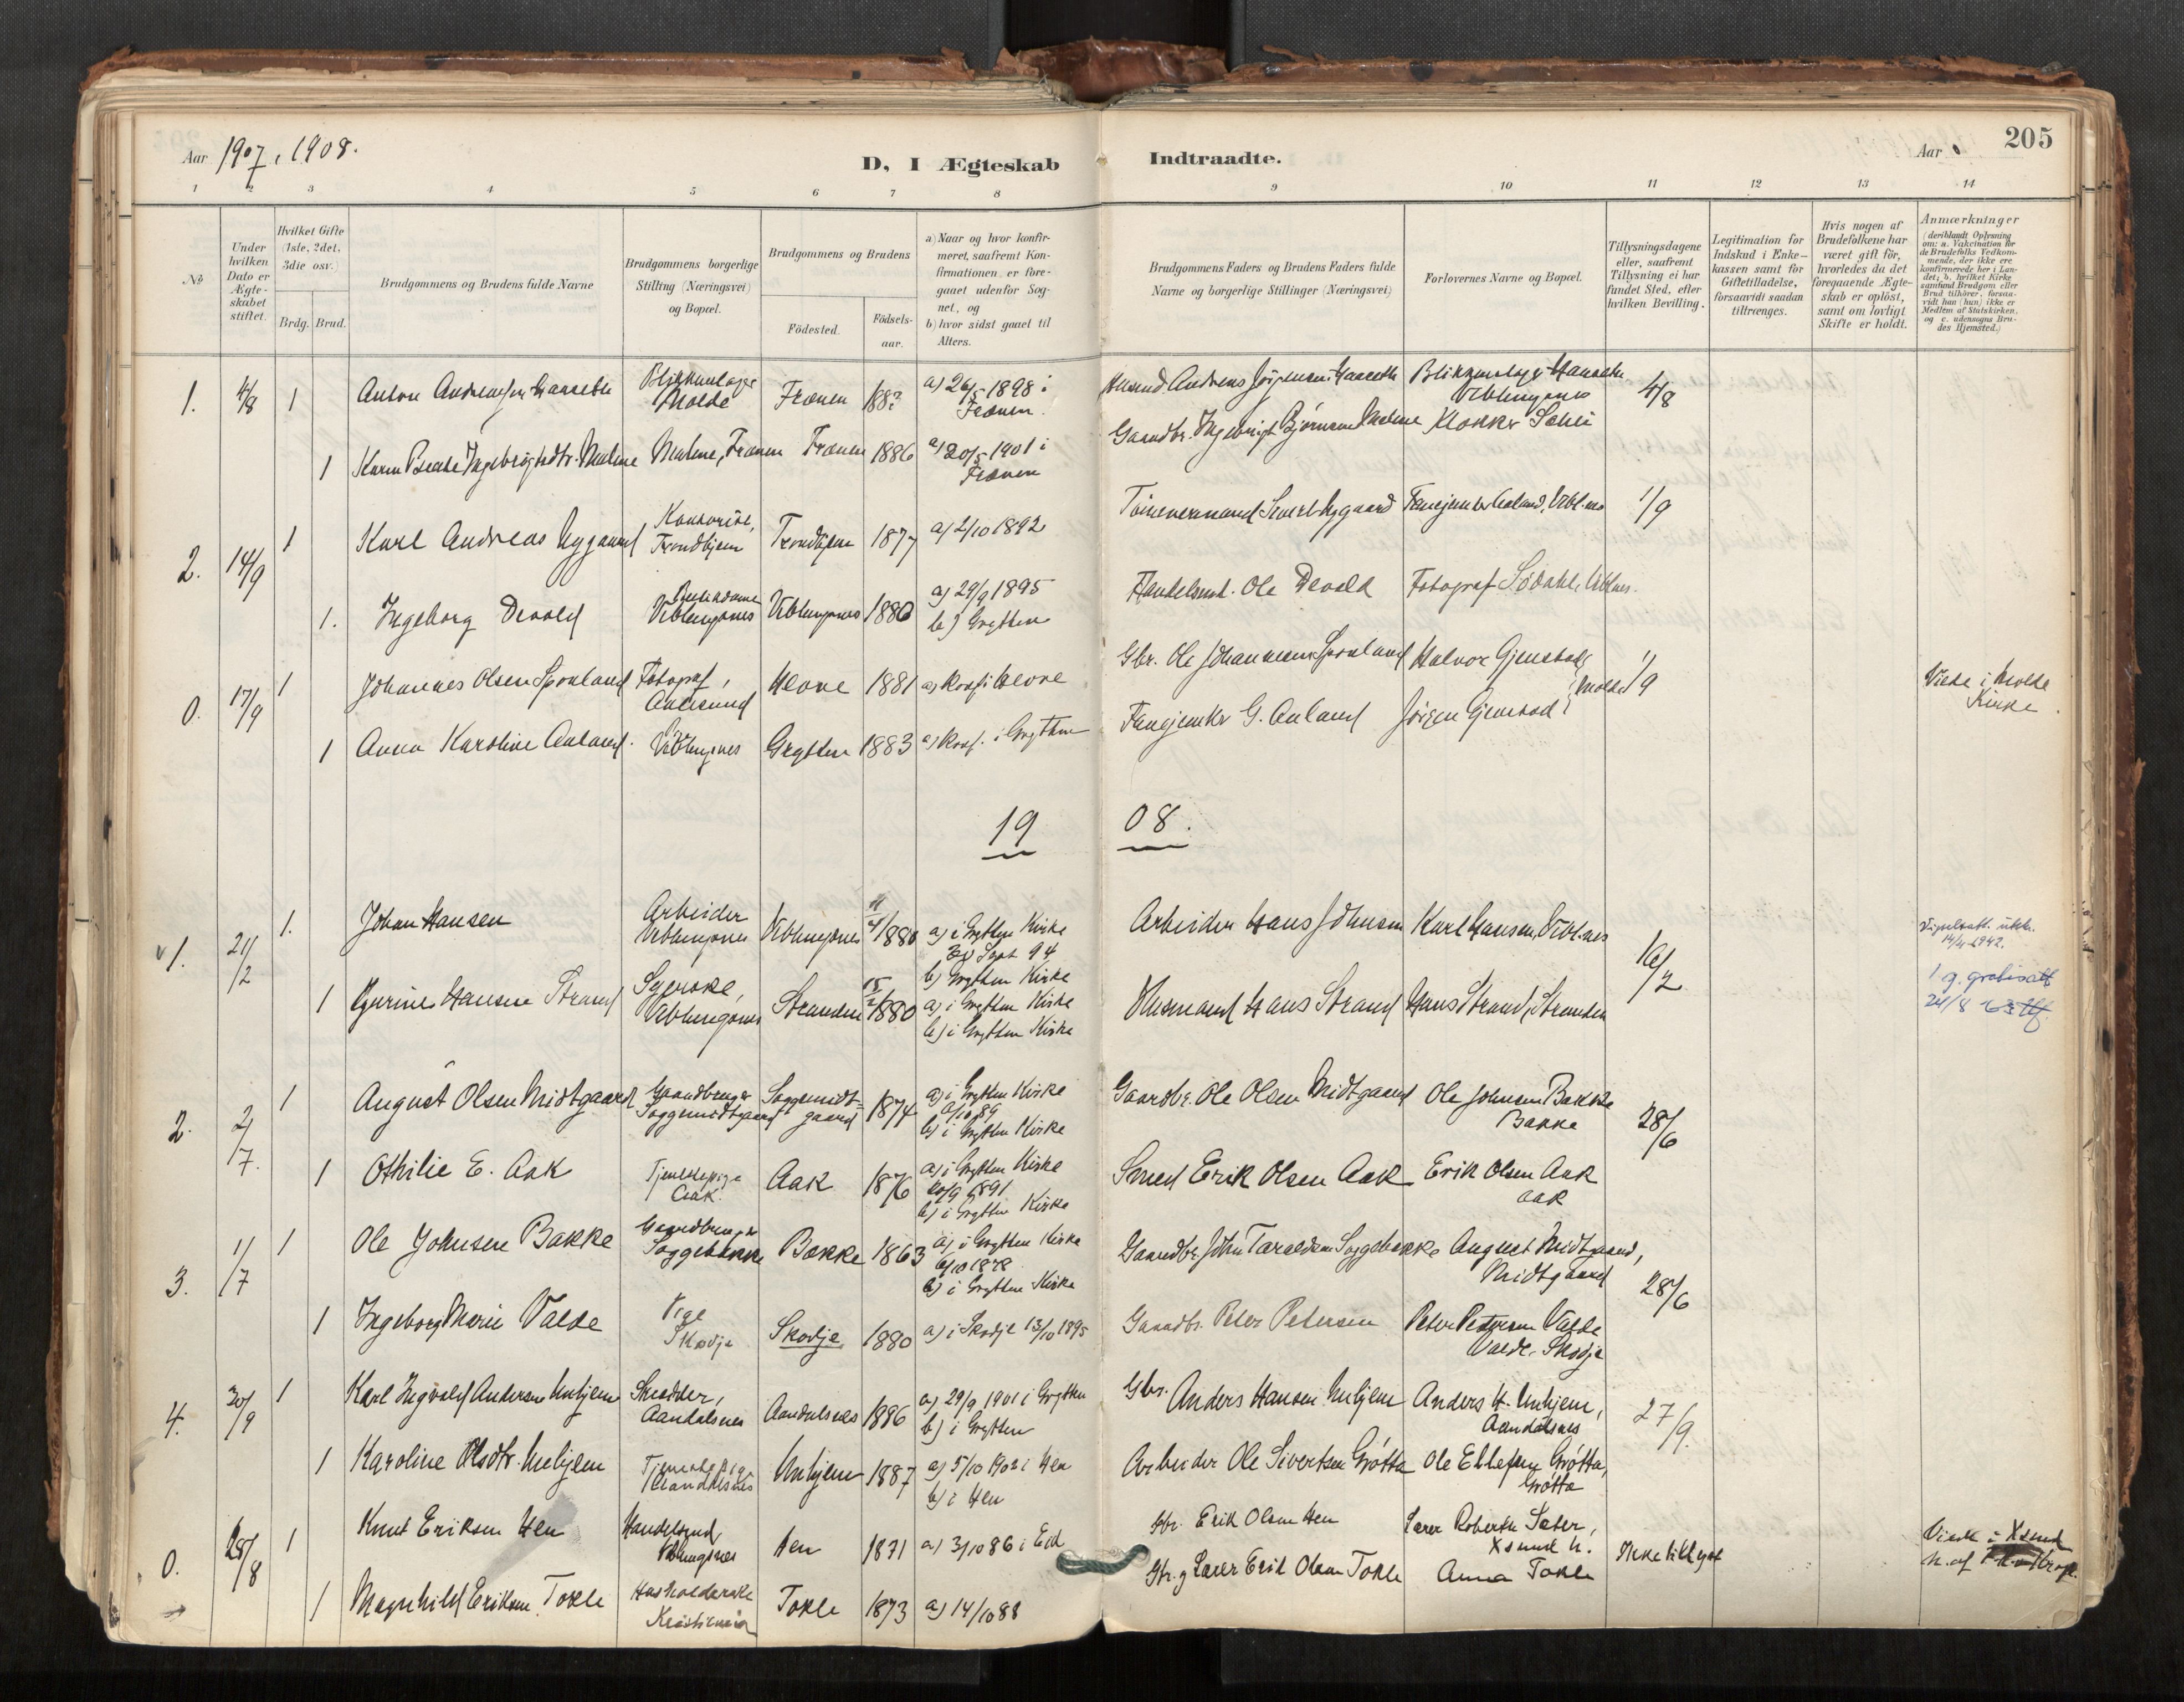 Aar 1907, 1908.
D, I Ægteskab Indtraadte.
Aar
205
1 2 3 4 5 6 7 8 9 10 11 12 13 14
No
Under hvilken Dato er Ægte-skabet stiftet.
Hvilket Gifte (1ste, 2det, 3die osv.)
Brdg. Brud.
Brudgommens og Brudens fulde Navne
Brudgommens borgerlige Stilling (Næringsvei) og Bopæl.
Brudgommens og Brudens
Födested.
Födsels-aar.
a) Naar og hvor konfir-meret, saafremt Kon-firmationen er fore-gaaet udenfor Sog-net, og
b) hvor sidst gaaet til Alters.
Brudgommens Faders og Brudens Faders fulde Navne og borgerlige Stillinger (Næringsvei)
Forlovernes Navne og Bopæl.
Tillysningsdagene eller, saafremt Tillysning ei har fundet Sted, efter hvilken Bevilling.
Legitimation for Indskud i Enke-kassen samt for Giftetilladelse, forsaavidt saadan tiltrænges.
Hvis nogen af Brudefolkene har været gift för, hvorledes da det foregaaende Ægte-skab er oplöst, samt om lovligt Skifte er holdt.
Anmærkninger (deriblandt Oplysning om: a. Vakcination for de Brudefolks Vedkom-mende, der ikke ere konfirmerede her i Lan-det; b. hvilket Kirke-samfund Brudgom eller Brud tilhörer, forsaa-vidt han (hun) ikke er Medlem af Statskirken, og c. udensogns Bru-des Hjemsted.)
1. 4/8 1 Anton Andreassen Haaseth Molde Frænen a) 26/5 1898 i Frænen. Husmd. Andreas Jörgensen Haaseth 4/8
Veblungsnes
1 Karen Beate Ingebrigtsdtr. Malme Malme, Frænen Frænen 1886 a) 20/5 1901 i Frænen Gaardbr. Ingebrigt Björnsen Malme Klokker
2. 14/9 1 Karl Andreas Nygaard Kontorist, Trondhjem Trondhjem 1877 a) 2/10 1892 Sivert Nygaard Aaland, Vebl.nes 1/9
1. Ingeborg Devold Veblungsnes Veblungsnes 1880 a) 29/9 1895 b) Grytten Handelsmd. Ole Devold Fotograf Södahl, Veblnes.
0. 17/9 1 Johannes Olsen Fotograf, Aalesund 1881 Gbr. Ole Johannesen Halvor Gjenstad 1/9 Viede i Molde Kirke.
1 Anna Karoline Aaland. Veblungsnes Grytten 1883 a) Konf. i Grytten G. Aaland Jörgen Gjenstad Molde
19 08.
1. 21/2 1. Johan Hansen Arbeider Veblungsnes Veblungsnes 1880 a) i Grytten Kirke Sept 94 b) Grytten Kirke Arbeider Hans Johnsen Karl Hansen, Vebl.nes 16/2 Vigselsatt. utst. 14/4 1942.
1 Hansen Strand Syerske, Veblungsnes Stranden 15/2 1880 a) i Grytten Kirke b) i Grytten Kirke Husmand Hans Strand Hans Strand, Stranden 1 g. gratisatt 24/8
2. 2/7. 1 August Olsen Midtgaard Gaardbruger Soggemidtgaard Soggemidt-gaard 1874 a) i Grytten Kirke b) i Grytten Kirke Gaardbr. Ole Olsen Midtgaard Ole Johnsen Bakke Bakke 28/6
1 Othilie E. Aak Tjenestepige Aak. Aak 1876 a) i Grytten Kirke 20/9 1891 b) i Grytten Kirke Smed Erik Olsen Aak Erik Olsen Aak Aak
3. 1/7 1 Ole Johnsen Bakke Gaardbruger Soggebakke Bakke 1863 a) i Grytten Kirke 6/10 1878 b) i Grytten Kirke Gaardbr. John Taraldsen Soggebakke August Midtgaard, Midtgaard 28/6
1 Ingeborg Marie Valde Pige Skodje Skodje 1880 a) i Skodje 13/10 1895 Gaardbr. Peter Petersen Peter Petersen Valde Valde, Skodje
4. 30/9 1 Karl Ingvald Andersen Unhjem Skrædder, Aandalsnes Aandalsnes 1886 a) 29/9 1901 i Grytten b) i Grytten Gbr. Anders Hansen Unhjem Anders H. Unhjem, Aandalsnes 27/9.
1 Karoline Olsdtr. Unhjem Tjenestepige Aandalsnes Unhjem 1887 a) 5/10 1902 i Hen b) i Hen Arbeider Ole Sivertsen Grötta Ole Ellefsen Grötta, Grötta
0. 28/8 1 Knut Eriksen Hen Handelsmd. Veblungsnes Hen 1871 a) 3/10 86 i Eid Gbr. Erik Olsen Hen Lærer Robert Sæter, Xsund N. Ikke tillyst Viede i Xsund
1 Magnhild Eriksen Tokle Husholderske Kristiania Tokle 1873 a) 14/10 88 Gbr. og Lærer Erik Olsen Tokle Anna Tokle N. af